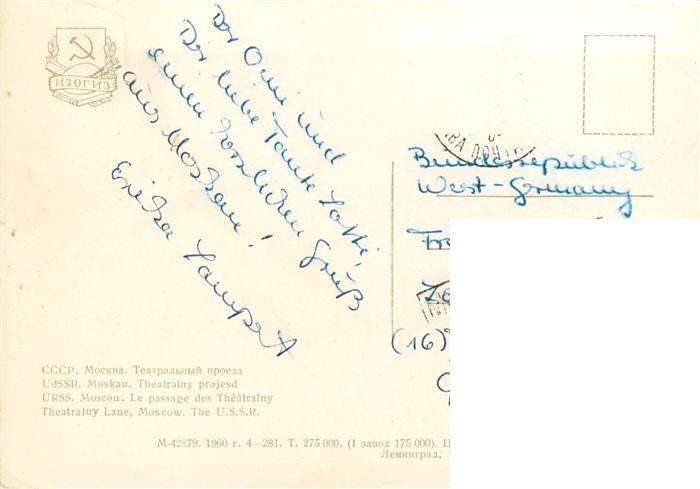 ИЗОГИЗ
Der Omi und
Dir liebe Tante Lotti,
einen herzlichen Gruß
aus Moskau!
ВА ПОЧТА
Bundesrepublik
West-Germany
(16)
СССР. Москва. Театральный проезд
UdSSR. Moskau. Theatralny projesd
URSS. Moscou. Le passage des Théâtralny
Theatralny Lane, Moscow. The U.S.S.R.
М-42879. 1960 г. 4—281. Т. 275 000. (I завод 175 000).
Ленинград,